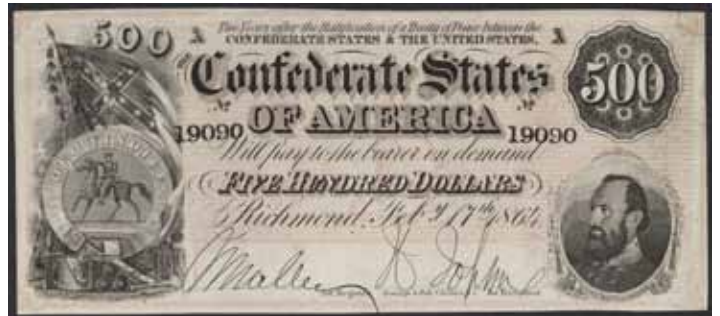 500 A Two Years after the Ratification of a Treaty of Peace between the A
CONFEDERATE STATES & THE UNITED STATES, 500
Confederate States
OF AMERICA
19090 19090
Will pay to the bearer on demand
FIVE HUNDRED DOLLARS
Richmond, Feby. 17th 1864